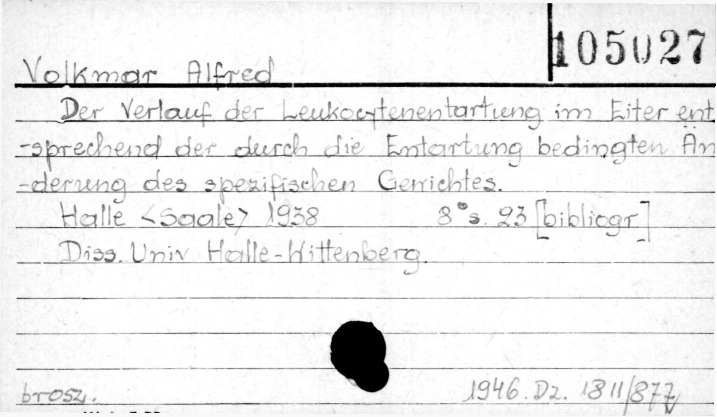 105027
Volkmar Alfred
Der Verlauf der Leukocytenentartung im Eiter ent
-sprechend der durch die Entartung bedingten Än
-derung des spezifischen Gewichtes.
Halle <Saale> 1938 8° s. 23 [bibliogr]
Diss. Univ Halle-Wittenberg.
brosz. 1946. Dz. 1811/877